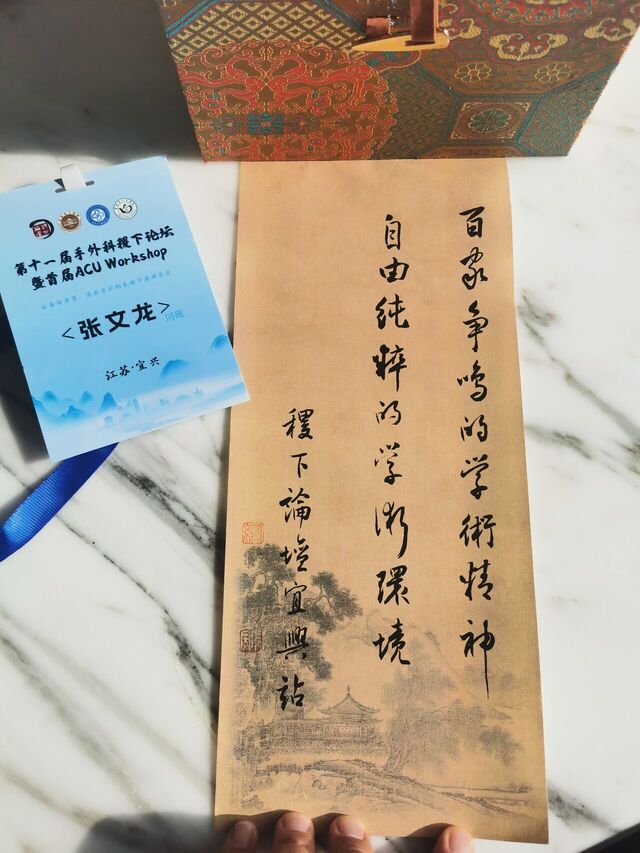 第十一届手外科稷下论坛
暨首届ACU Workshop
<张文龙>
江苏·宜兴
百家争鸣的学術精神
自由纯粹的学術環境
稷下論壇宜興站